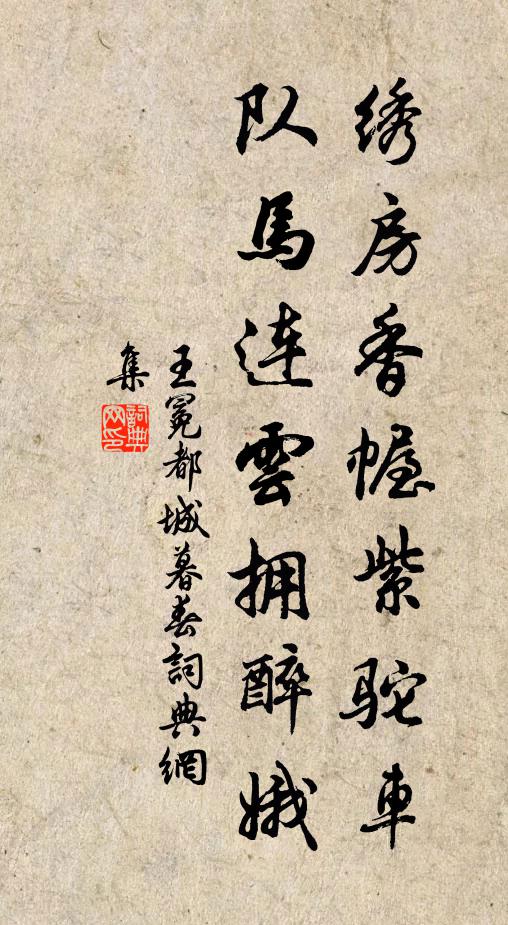 绣房香幄紫驼車
队馬连雲拥醉娥
王冕都城暮春詞典網
集
詞典
网印